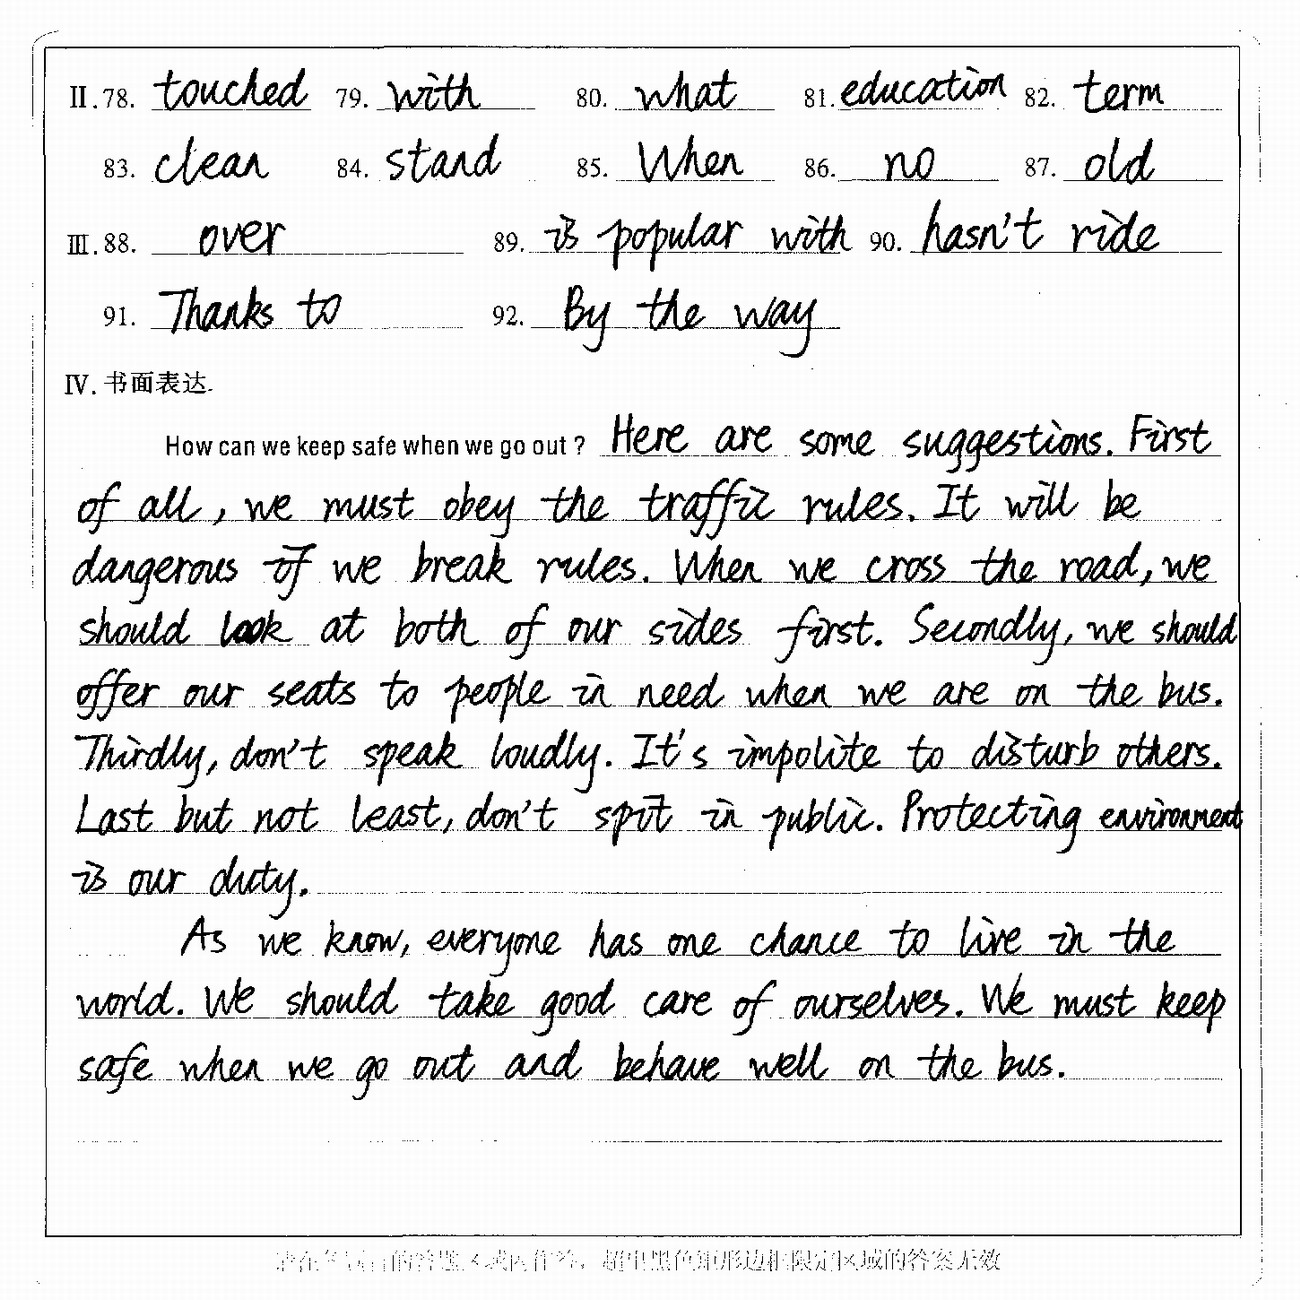 II.78. touched 79. with 80. what 81. education 82. term
83. clean 84. stand 85. When 86. no 87. old
III.88. over 89. is popular with 90. hasn't ride
91. Thanks to 92. By the way
IV. 书面表达.
How can we keep safe when we go out? Here are some suggestions. First
of all, we must obey the traffic rules. It will be
dangerous if we break rules. When we cross the road, we
should look at both of our sides first. Secondly, we should
offer our seats to people in need when we are on the bus.
Thirdly, don't speak loudly. It's impolite to disturb others.
Last but not least, don't spit in public. Protecting environment
is our duty.
As we know, everyone has one chance to live in the
world. We should take good care of ourselves. We must keep
safe when we go out and behave well on the bus.
请在各题目的答题区域内作答，超出黑色矩形边框限定区域的答案无效